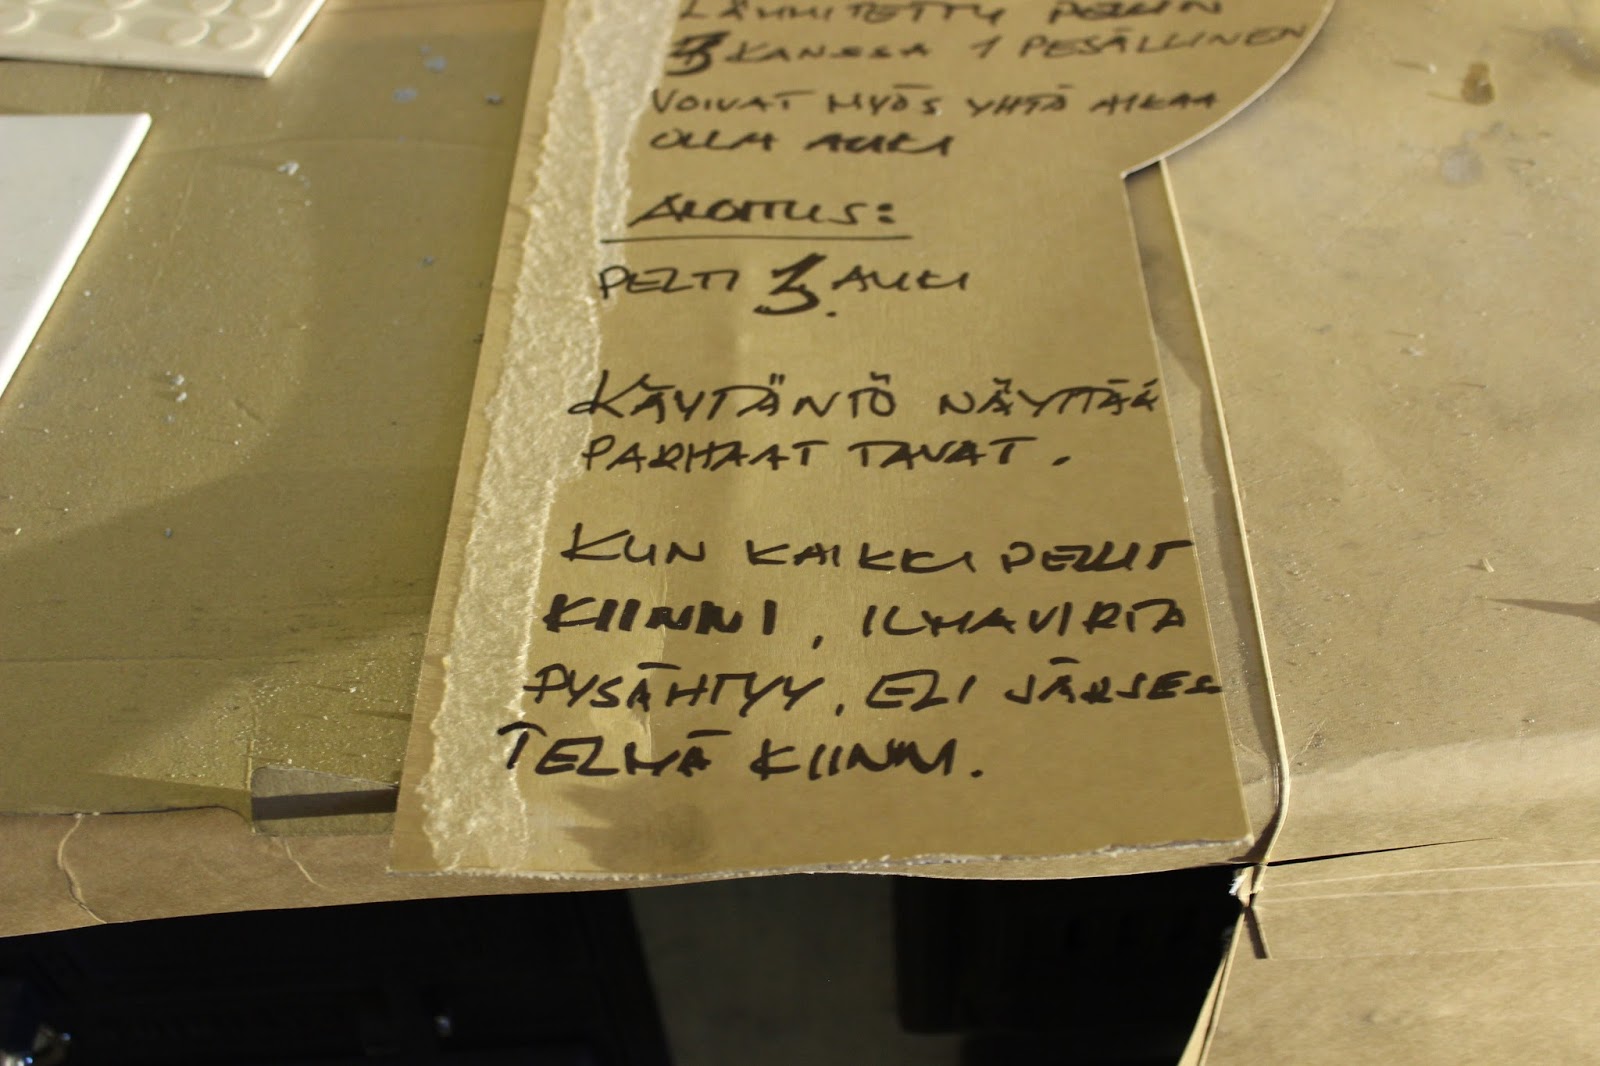 LÄMMITETTY PELLIN
3 KANSSA 1 PESÄLLINEN
VOIVAT MYÖS YHTÄ AIKAA
OLLA AUKI
ALOITUS:
PELTI 3. AUKI
KÄYTÄNTÖ NÄYTTÄÄ
PARHAAT TAVAT.
KUN KAIKKI PELLIT
KIINNI, ILMAVIRTA
PYSÄHTYY, ELI JÄRJES-
TELMÄ KIINNI.